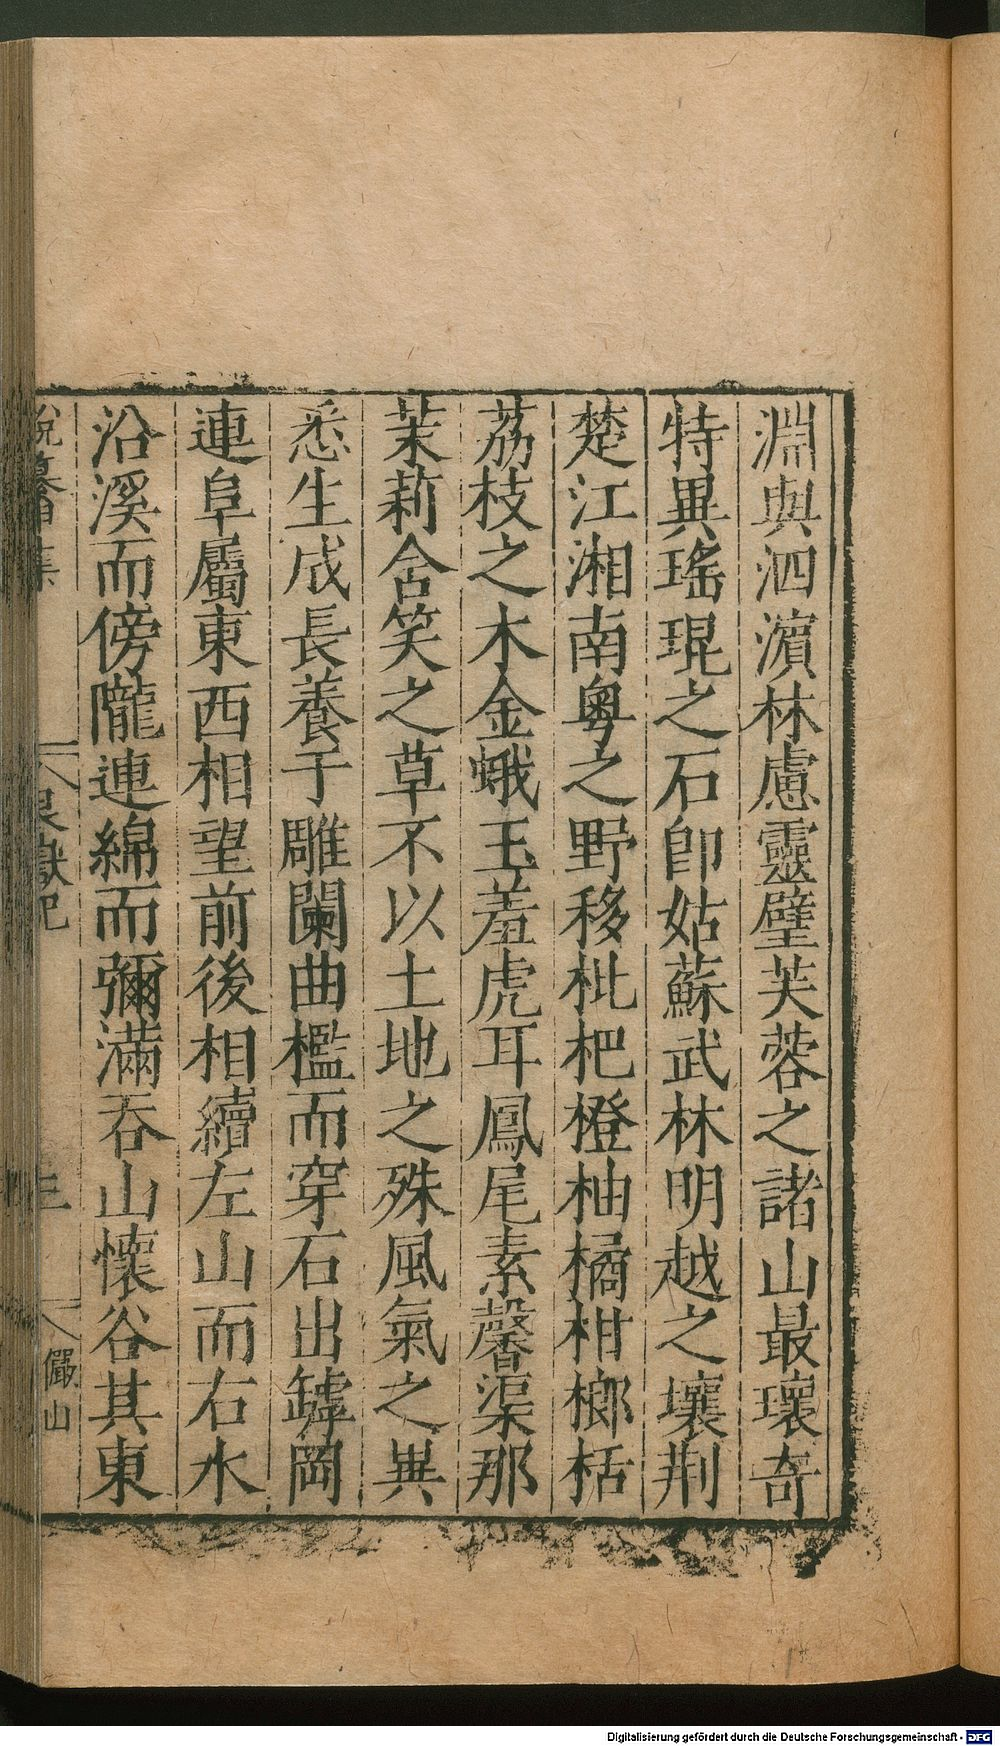 淵與泗濵林慮靈璧芙蓉之諸山最瓌奇
特異瑤琨之石卽姑蘇武林明越之壤荆
楚江湘南粤之野移枇杷橙柚橘柑榔栝
荔枝之木金蛾玉羞虎耳鳳尾素馨渠那
茉莉含笑之草不以土地之殊風氣之異
悉生成長養于雕闌曲檻而穿石出罅岡
連阜屬東西相望前後相續左山而右水
沿溪而傍隴連綿而彌滿吞山懷谷其東
說纂甲集
艮嶽記
三
儼山
Digitalisierung gefördert durch die Deutsche Forschungsgemeinschaft - DFG